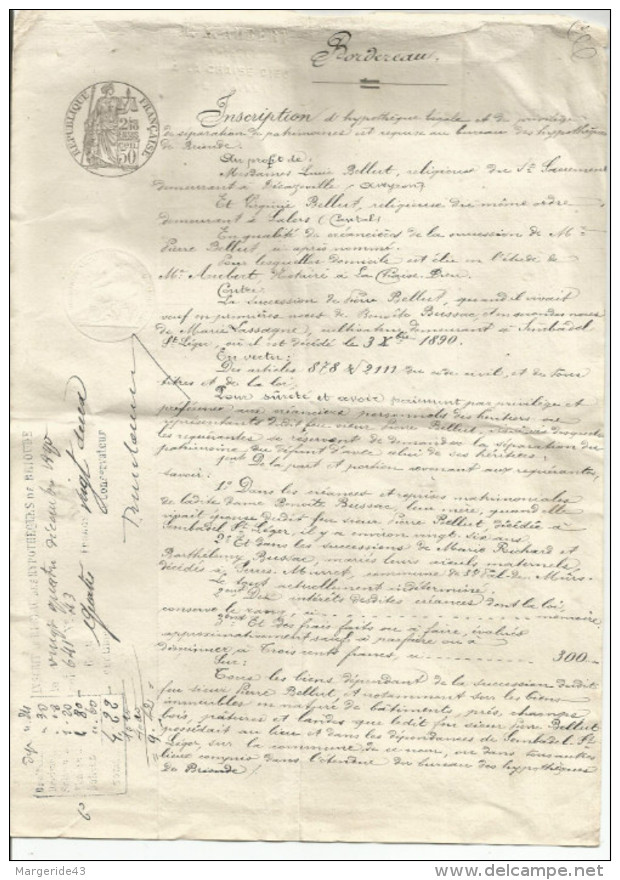 Bordereau
RÉPUBLIQUE FRANÇAISE
50
Inscription d'hypothèque légale et de privilège
de séparation de patrimoines est requise au bureau des hypothèques
de Brioude.
Au profit de:
Mesdames Lucie Bellut, religieuse du St Sacrement
demeurant à Décazeville (Aveyron)
Et Virginie Bellut, religieuse du même ordre
demeurant à Salers (Cantal)
En qualité de créancières de la succession de Mr
Pierre Bellut ci après nommé.
Pour lesquelles domicile est élu en l'étude de
Me Aubert Notaire à La Chaise-Dieu
Contre:
La succession de Pierre Bellut, quand il vivait
veuf en premières noces de Benoîte Bussac, et en secondes noces
de Marie Lassagne, cultivateur demeurant à Sembadel
St Léger, où il est décédé le 3 Xbre 1890.
En vertu:
Des articles 878 & 2111 du code civil, et de tous
titres et de la loi,
Pour sûreté et avoir paiement par privilège et
préférence aux créanciers personnels des héritiers ou
représentants dudit feu sieur Pierre Bellut, contre lesquels
les requérantes se réservent de demander la séparation du
patrimoine du défunt d'avec celui de ses héritiers:
De la part et portion revenant aux requérantes,
savoir:
1° Dans les créances et reprises matrimoniales
de ladite dame Benoîte Bussac, leur mère, quand elle
vivait épouse dudit feu sieur Pierre Bellut, décédée à
Sembadel St Léger, il y a environ vingt six ans
2° Et dans les successions de Marie Richard et
Barthélemy Bussac, mariés leurs aïeuls maternels,
décédés à commune de St Pal de Murs.
Le tout actuellement indéterminé.
Des intérêts desdites créances dont la loi,
conserve le rang, ci mémoire
Et des frais faits ou à faire, évalués
approximativement sauf à parfaire ou à
diminuer à Trois cents francs, ci 300
Sur:
Tous les biens dépendant de la succession dudit
feu sieur Pierre Bellut et notamment sur les biens
immeubles en nature de bâtiments, prés, champs
bois, pâtures et landes que ledit feu sieur Pierre Bellut
possédait au lieu et dans les dépendances de Sembadel St
Léger, sur la commune de ce nom, ou dans tous autres
lieux compris dans l'étendue du bureau des hypothèques
de Brioude
INSCRIT AU BUREAU DES HYPOTHÈQUES DE BRIOUDE
vingt quatre décembre 1890
641 43
quatre vingt deux
Conservateur
Margeride43
www.delcampe.net